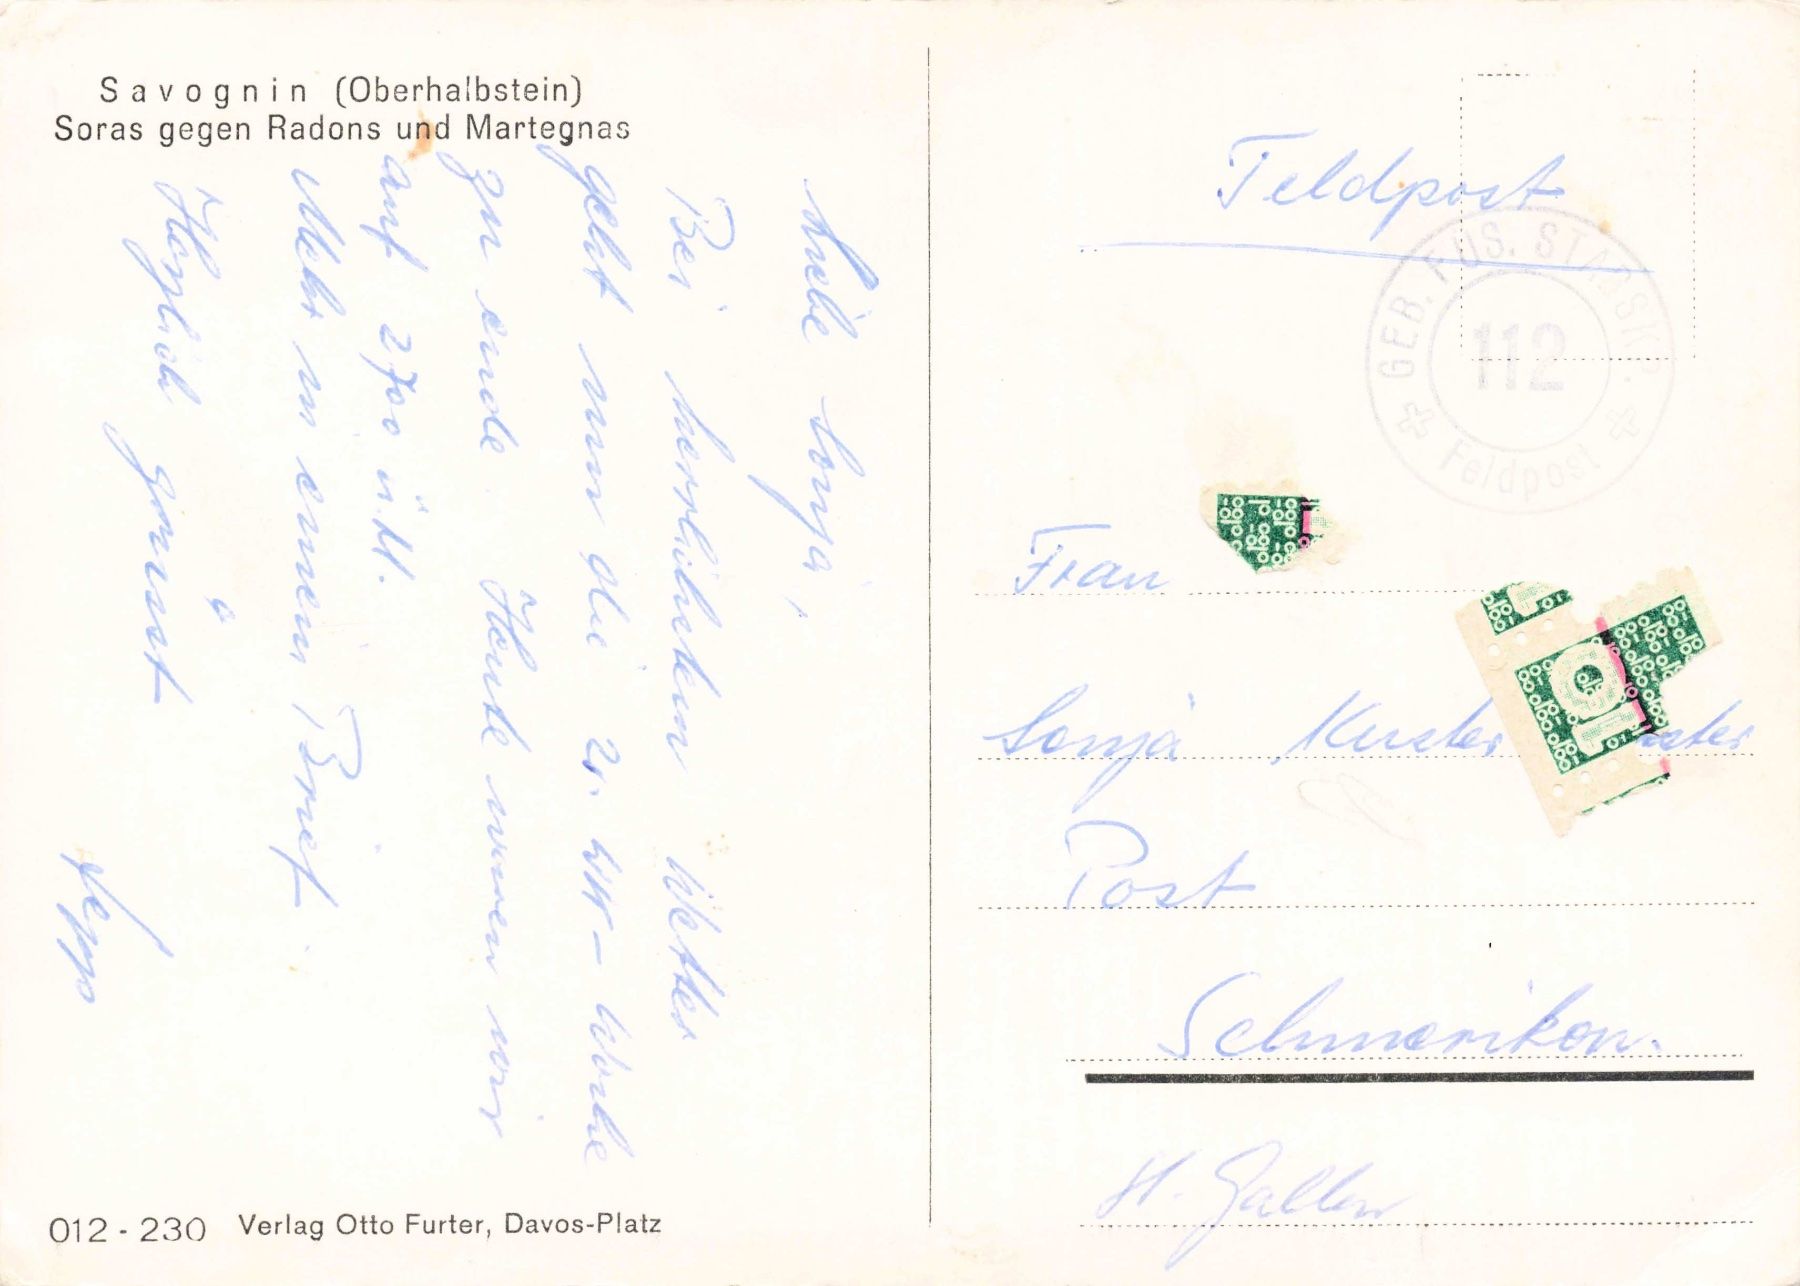 Savognin (Oberhalbstein)
Soras gegen Radons und Martegnas
Liebe Sonja,
Bei herrlichstem Wetter
geht nun die 2. WK-Woche
zu ende. Heute waren wir
auf 2700 ü.M.
Mehr in einem Brief
Herzlich grüsst
Sepp
012-230 Verlag Otto Furter, Davos-Platz
Feldpost
GEB. FÜS. STABSKP.
112
Feldpost
Frau
Sonja Kuster
Post
Schmerikon.
St. Gallen